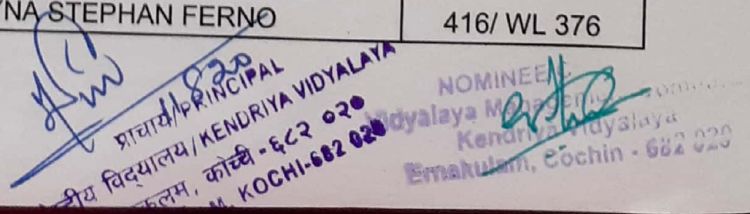 NA STEPHAN FERNO 416/ WL 376
प्राचार्य/PRINCIPAL
विद्यालय/KENDRIYA VIDYALAYA
कोच्ची-६८२ ०२०
KOCHI-682 020
NOMINEE
Vidyalaya
Kendriya Vidyalaya
Ernakulam, Cochin - 682 020